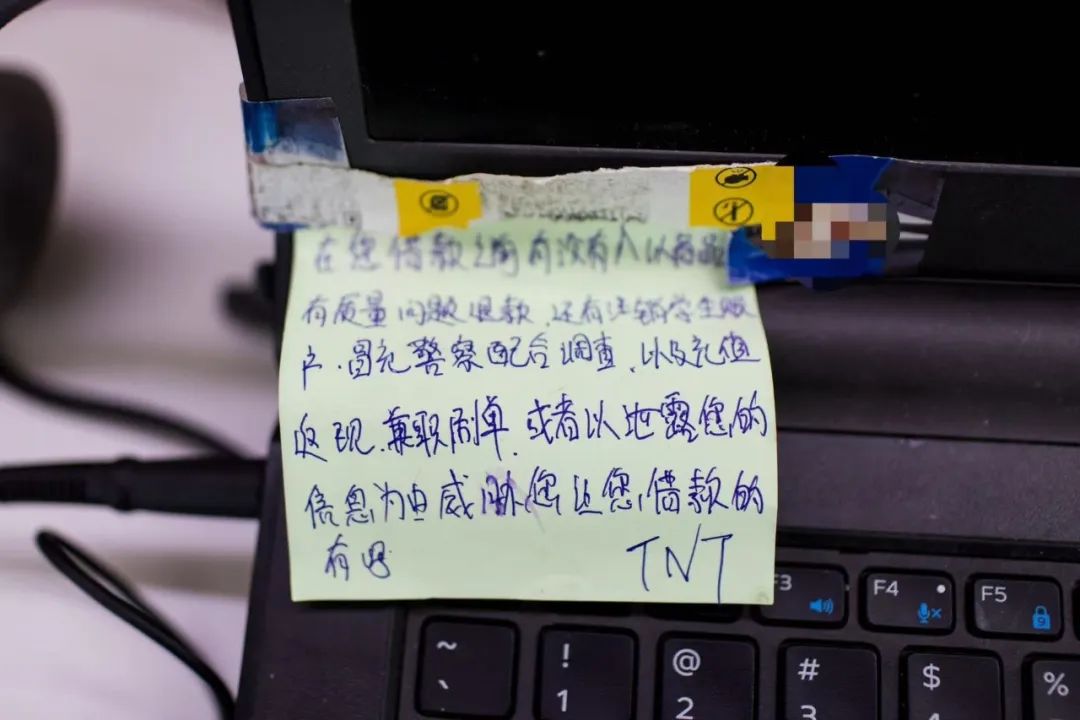 在您借款之前有没有人以商品
有质量问题退款、还有注销学生账
户、冒充警察配合调查、以及充值
返现、兼职刷单、或者以泄露您的
信息为由威胁您让您借款的
有吗
TNT
F3
F4
F5
~
`
!
1
@
2
#
3
$
%